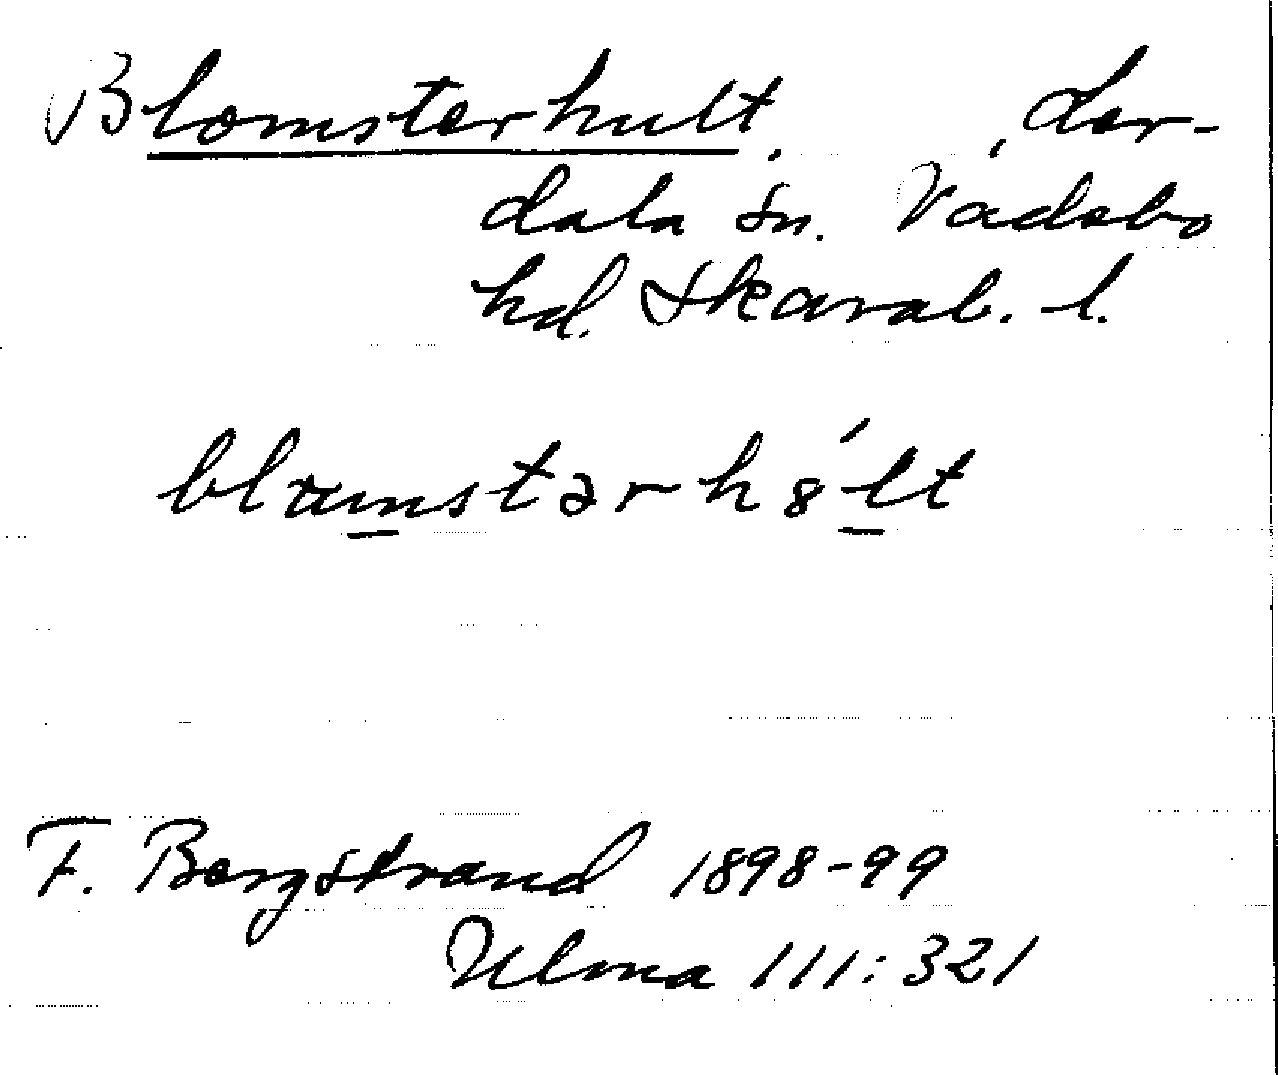 Blomsterhult. , Ler-
dala sn. Vadsbo
hd. Skarab. l.
blumstərh8́lt
F. Bergstrand 1898-99
Ulma 111:321